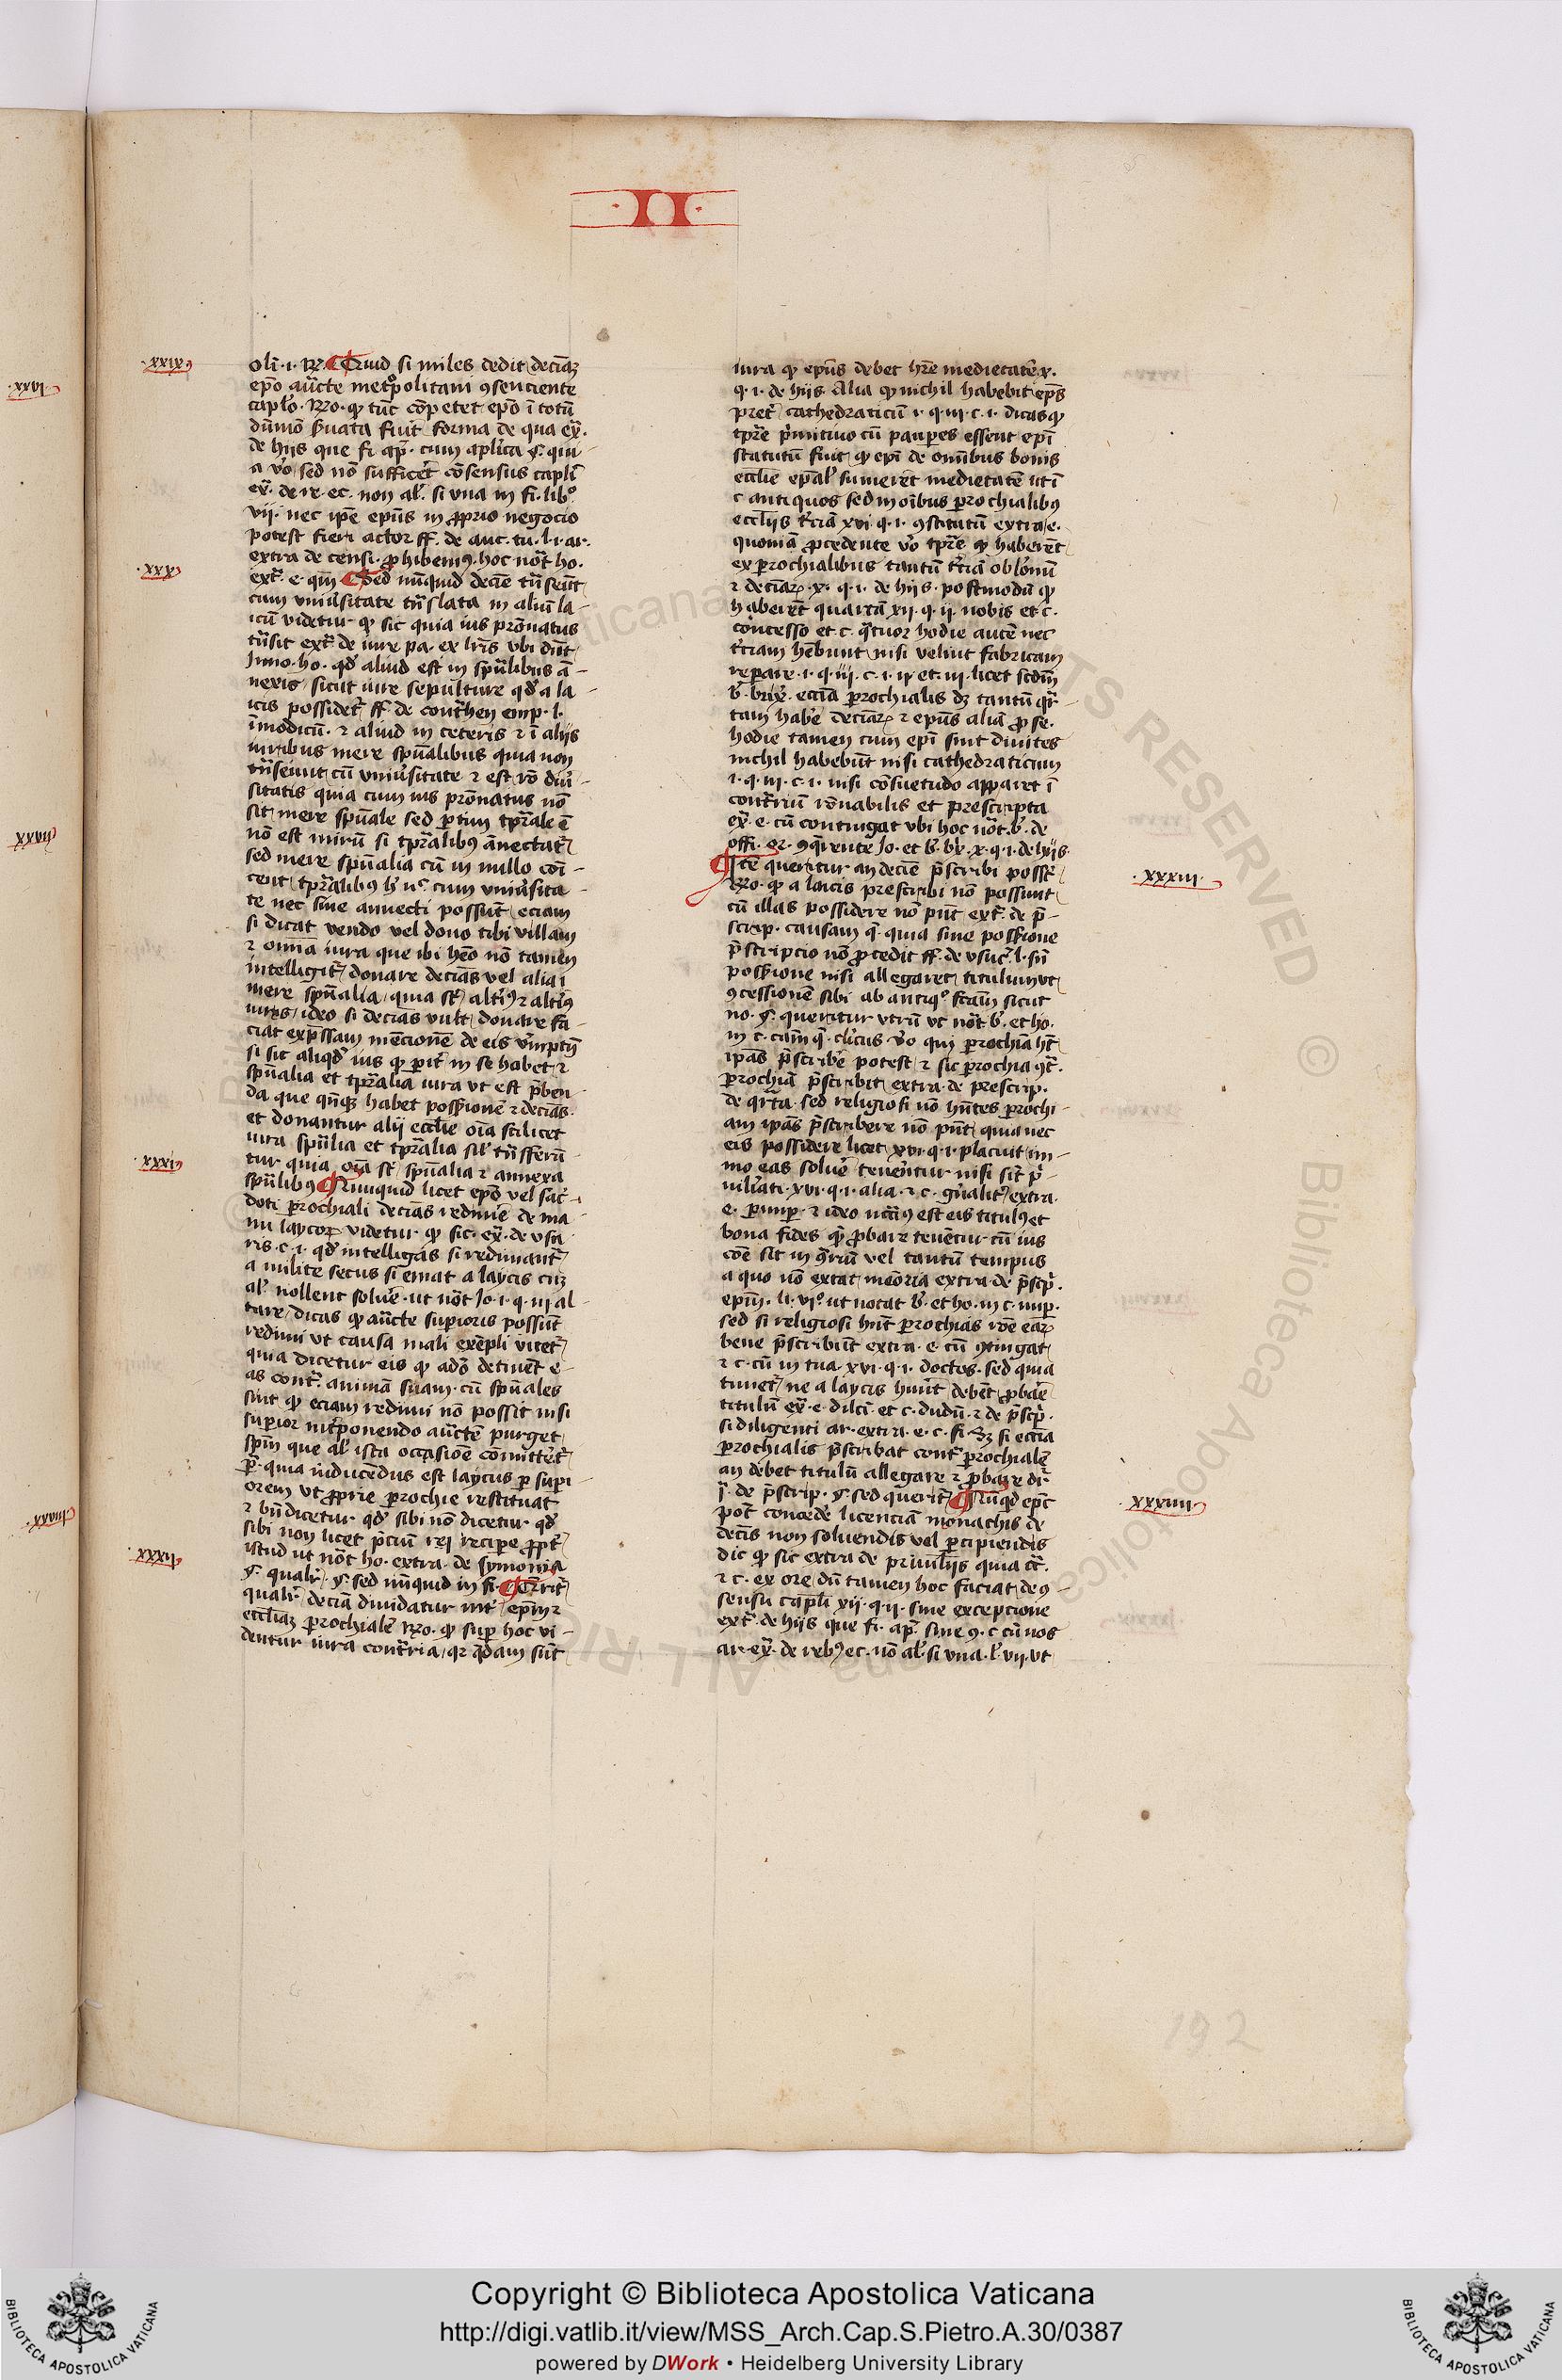 ·II·
xxix
olī·i·R̄. Quid si miles dedit decimā
ep̄o auc̄te met̄politani ꝯsenciente
caplō·R̄o·ꝙ tūc cōpetet ep̄o ī totū
dūmō ẜuata fiūt forma de qua ex̄·
de hijs que fi ap̄· cum aplīca §· qui
a v̄o sed nō sufficēt cōsensus caplī
ex̄· de re· ec· non al̄· si vna in fi· lib°
vij· nec ip̄e ep̄us in ꝓprio negocio
potest fieri actor ff· de auc· tu· l·i· ar·
extra de censi· ꝓhibem⁹· hoc nōt ho·
xxx
ext̄· e· qm̄ Sed nūquid decīe tn̄seūt
cum vniūsitate tn̄slata in aliū la
icū videtur ꝙ sic quia ius prōnatus
tn̄sit ext̄· de iure pa· ex lr̄is vbi dn̄t
Inno· ho· qd̄ aliud est in spūlibus ā
nexis sicut iure sepulture qd̄ a la
icis possidet̄ ff· de cont̄hen emp· l·
īmodicū· ⁊ aliud in ceteris ⁊ ī alijs
iuribus mere spūalibus quia non
tn̄seunt cū vniūsitate ⁊ est rō diū
sitatis quia cum ius prōnatus nō
sit mere spūale sed ꝑtim tꝑ̄ale ē
nō est mirū si tꝑ̄alibus ānectat̄
sed mere spūalia cū in nullo cōi
cent tꝑ̄alib⁹ cum vniūsita
te nec sine annecti possūt eciam
si dicat vendo vel dono tibi villam
⁊ omīa iura que ibi hēo nō tamen
intelligit̄ donare decīas vel alia
mere spūalia quia st̄ alti⁹ ⁊ alti⁹
iuris ideo si decīas vult donare fa
ciat exp̄ssam mēcionē de eis
si sic aliqd̄ ius ꝙ ꝑit̄ in se habet ⁊
spūalia et tꝑ̄alia iura vt est p̄ben
da que qn̄qꝫ habet possessionē ⁊ decīas·
et donantur alij ecclīe oīa scilicet
iura spūlia et tꝑ̄alia sil̄ tn̄sferū
xxxi
tur quia oīa st̄ spūalia ⁊ annexa
spūlibus Nunquid licet ep̄o vel sac̄
doti ꝑrochiali decīas redimē de ma
nu laycoꝝ videtur ꝙ sic· ex̄· de vsu
ris· c·i· qd̄ intelligas si redimant̄
a milite secus si emat a laycis cum
al̄ nollent soluē· ut nōt Jo·i·q·iii al
tare dicas ꝙ auc̄te suꝑioris possūt
redimi vt causa mali exēpli vitet̄
quia dicetur eis ꝙ adō detinēt e
as cont̄· animā suam· cū spūales
sint ꝙ eciam redimi nō possit nisi
suꝑior int̄ponendo auc̄tē purget
spm̄ que al̄ ista occasiōe cōmittet̄
p̄· quia inducēdus est laycus ꝑ suꝑi
orem vt ꝓprie ꝑrochie restituat
⁊ bn̄dicetur qd̄ sibi nō dicetur qd̄
sibi non licet p̄ciū rei recipe ꝓpt̄
xxxii
istud ut nōt ho· extra· de symonia
§· qualit̄· §· sed nūquid in fi· Querit̄
qualit̄ decīa diuidatur int̄ ep̄m ⁊
ecclīam ꝑrochialē R̄o· ꝙ suꝑ hoc vi
dentur iura cont̄ria qꝛ q̄dam sūt
iura ꝙ ep̄us debet hr̄e medietatē x·
q·i· de hijs· Alia ꝙ nichil habebit ep̄s
pret̄ cathedraticū i·q·iii·c·i· dicas ꝙ
tꝑ̄e p̄mitiuo cū pauꝑes essent ep̄i
statutū fuit ꝙ ep̄i de omībus bonis
ecclīe ep̄al̄ sumerēt medietatē ut ī
c· antiquos sed in oībus ꝑrochialib⁹
ecclīijs t̄ciā xvi·q·i· ꝯstitutū extra e·
quoniā ꝓcedente v̄o tꝑ̄e ꝙ haberēt
ex ꝑrochialibus tantū t̄ciā oblōnū
⁊ decīaꝝ·x·q·i· de hijs· postmodū ꝙ
haberēt quartā xij·q·ij· nobis et c·
concesso et c· q̄tuor hodie autē nec
t̄ciam hēbunt nisi velint fabricam
reparare·i·q·iij·c·i·ij et·iij· licet scdm̄
b̄· brix̄· ecclīa ꝑrochialis dꝫ tantū qr̄
tam habē decīaꝝ ⁊ ep̄us aliā ꝓ se·
hodie tamen cum ep̄i sint diuites
nichil habebūt nisi cathedraticum
i·q·iii·c·i· nisi cōsuetudo apparet ī
cont̄riū rōnabilis et prescripta
ex̄· e· cū contingat vbi hoc nōt b̄· de
offi· or· ꝯq̄rente Jo· et b̄· br̄·x·q·i· de hijs·
xxxiii
Itē queritur an decīe p̄scribi possīt
R̄o· ꝙ a laicis prescribi nō possunt
cū illas possidere nō pn̄t ext̄· de p̄
scrip· causam q̄· quia sine possessione
p̄scripcio nō ꝓcedit ff· de vsuc̄· l· sn̄
possessione nisi allegaret titulum vt
ꝯcessionē sibi ab antiq° fcām sicut
no· §· queritur vtrū vt nōt b̄· et ho·
in c· cām q̄· cl̄icus v̄o qui ꝑrochiā ht̄
ip̄as p̄scribē potest ⁊ sic ꝑrochia ꝯt̄·
ꝑrochiā p̄scribit extra· de prescrip·
de qr̄ta· sed religiosi nō hn̄tes ꝑrochi
am ip̄as p̄scribere nō pn̄t quia nec
eis possidere licet xvi·q·i· placuit im
mo eas soluē tenentur nisi sit̄ p̄
uil̄iati·xvi·q·i· alia·⁊ c· gn̄alit̄ extra·
e· ꝑnuꝑ· ⁊ ideo nc̄ci⁹ est eis titul⁹ et
bona fides quā ꝓbare tenētur cū ius
cōe sit in ꝯ̄riū vel tantū tempus
a quo nō extat memoria extra de p̄scp̄·
ep̄m· li· vi° ut notat b̄· et ho· in c· nuꝑ·
sed si religiosi hn̄t ꝑrochias rōe eaꝝ
bene p̄scribūt extra· e· cū ꝯtingat
⁊ c· cū in tua· xvi·q·i· doctos· sed quia
timet̄ ne a laycis hn̄it debēt ꝓbare
titulū ex̄· e· dilc̄i· et c· dudū· ⁊ de p̄scp̄·
si diligenti ar· extra· e· c· fi Sꝫ si ecclīa
ꝑrochialis p̄scribat cont̄ ꝑrochialē
an debet titulū allegare ⁊ ꝓbare dic̄
xxxiiii
j̄· de p̄scrip· §· sed querit̄ Nūqd̄ ep̄c
pōt concedē licenciā monachis de
decīs non soluendis vel ꝑcipiendis
dic ꝙ sic extra de priuil̄ijs quia cc̄·
⁊ c· ex ore dū tamen hoc faciat de ꝯ
sensu capl̄i xij·q·ij· sine excepcione
ext̄· de hijs que fi· ap̄· sine ꝯ· c cū nos
ar· ex̄· de reb⁹ ec· nō al̄ si vna· l̄· vij· vt
192
Copyright © Biblioteca Apostolica Vaticana
http://digi.vatlib.it/view/MSS_Arch.Cap.S.Pietro.A.30/0387
powered by DWork • Heidelberg University Library